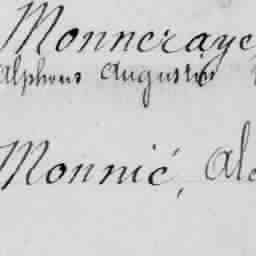 Monneraye
Alphons Augustin
Monnié, Al